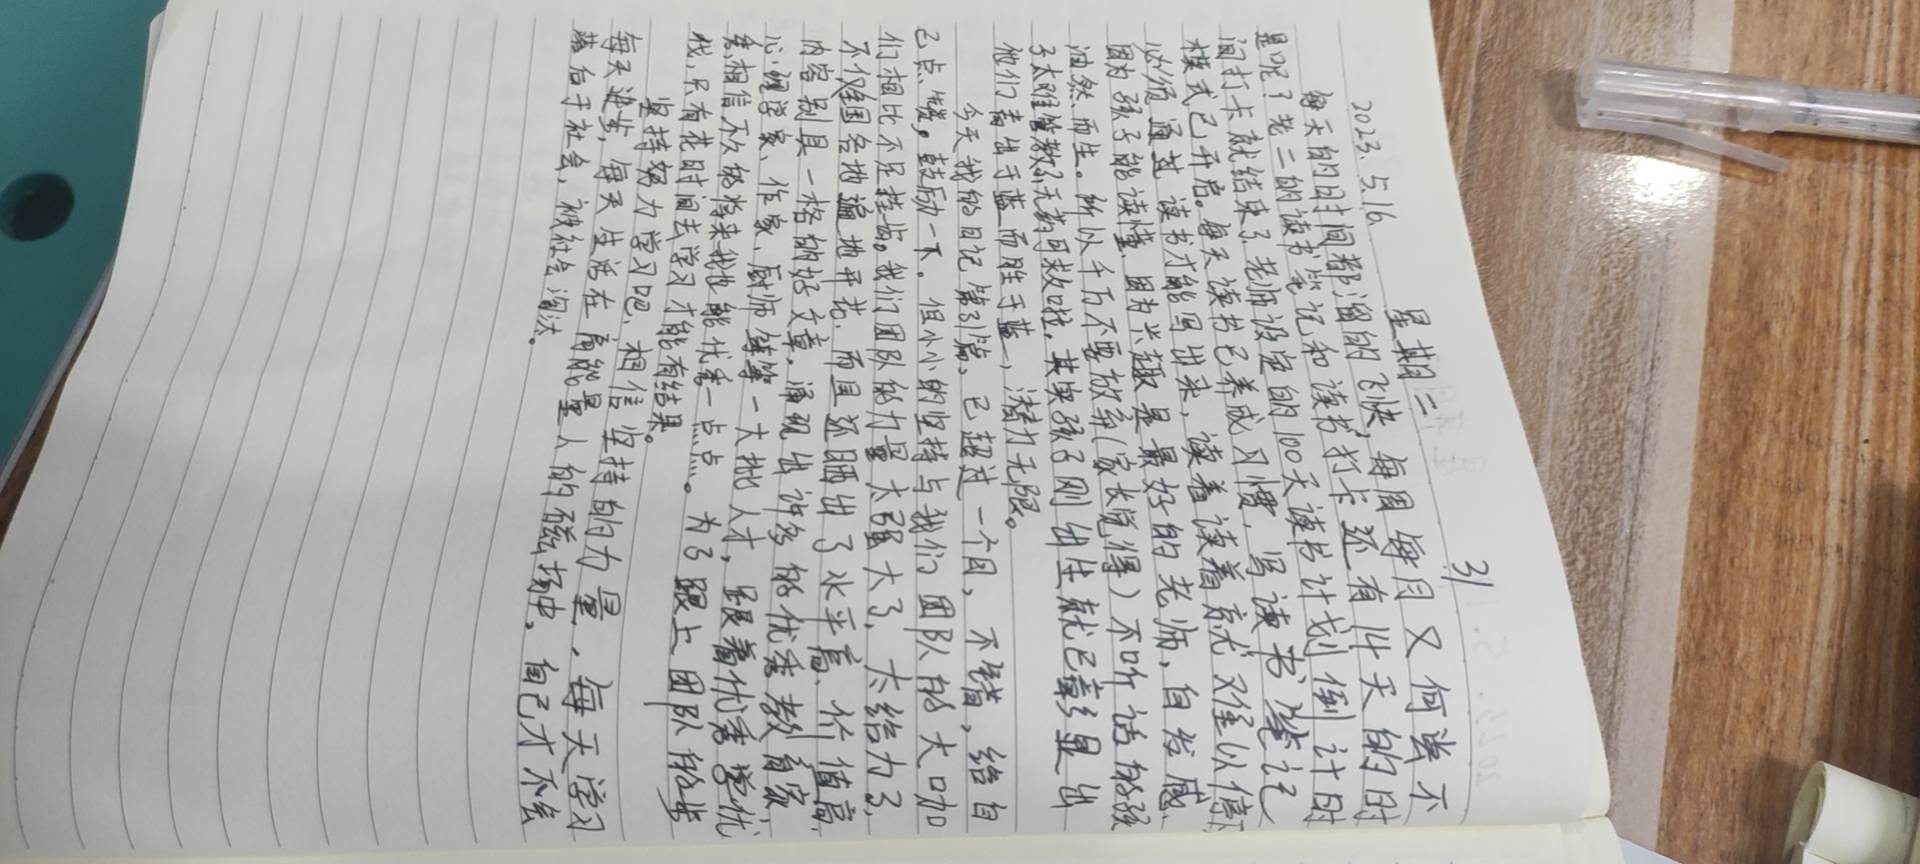 31
2023.5.16 星期二
每天的时间都溜的飞快,每周每月又何尝不
是呢?老二的读书笔记和读书打卡还有14天的时
间打卡就结束了,老师设定的100天读书计划倒计时
模式已开启。每天读书已养成习惯,写读书笔记
必须通过读书才能写出来,读着读着就难以停下
因为孩子能读懂,因为兴趣是最好的老师,自发感
油然而生。所以千万不要放弃(家长觉得)不听话的孩
子太难管教了无药可救口吐,其实孩子刚出生就已彰显出
他们青出于蓝而胜于蓝,潜力无限。
今天我的日记第31篇,已超过一个月,不错,给自
己点赞,鼓励一下。但小小的坚持与我们团队的大咖
们相比不足挂齿。我们团队的力量太强大了,太给力了,
不仅全国各地遍地开花,而且还晒出了水平高、价值高、
内容别具一格的好文章,涌现出许多的优秀教育家、
心理学家、作家、厨师等等一大批人才,跟着优秀学优
秀相信不久的将来我也能优秀一点点。为了跟上团队的步
伐,只有花时间去学习才能有结果。
坚持努力学习吧,相信坚持的力量,每天学习
每天进步,每天生活在高能量人的磁场中,自己才不会
落后于社会,被社会淘汰。